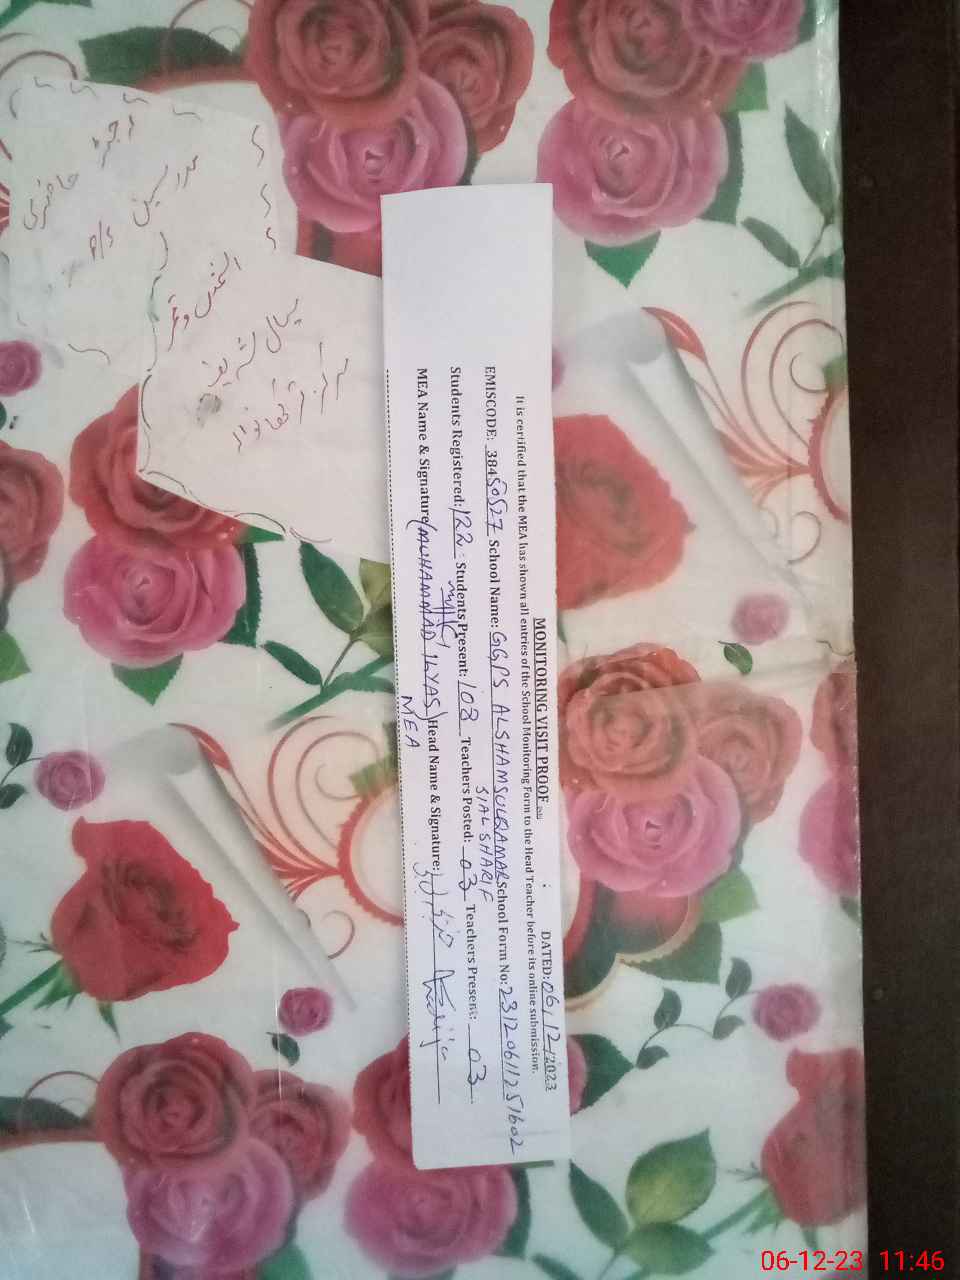 MONITORING VISIT PROOF
DATED: 06/12/2023
It is certified that the MEA has shown all entries of the School Monitoring Form to the Head Teacher before its online submission.
EMISCODE: 38450527 School Name: GGPS ALSHAMSULQAMAR SIAL SHARIF School Form No: 23120611251602
Students Registered: 122 Students Present: 108 Teachers Posted: 03 Teachers Present: 03
MEA Name & Signature (MUHAMMAD ILYAS) Head Name & Signature:
MEA
رجسٹر حاضری
مدرسین
الشمس و قمر
سیال شریف
06-12-23 11:46